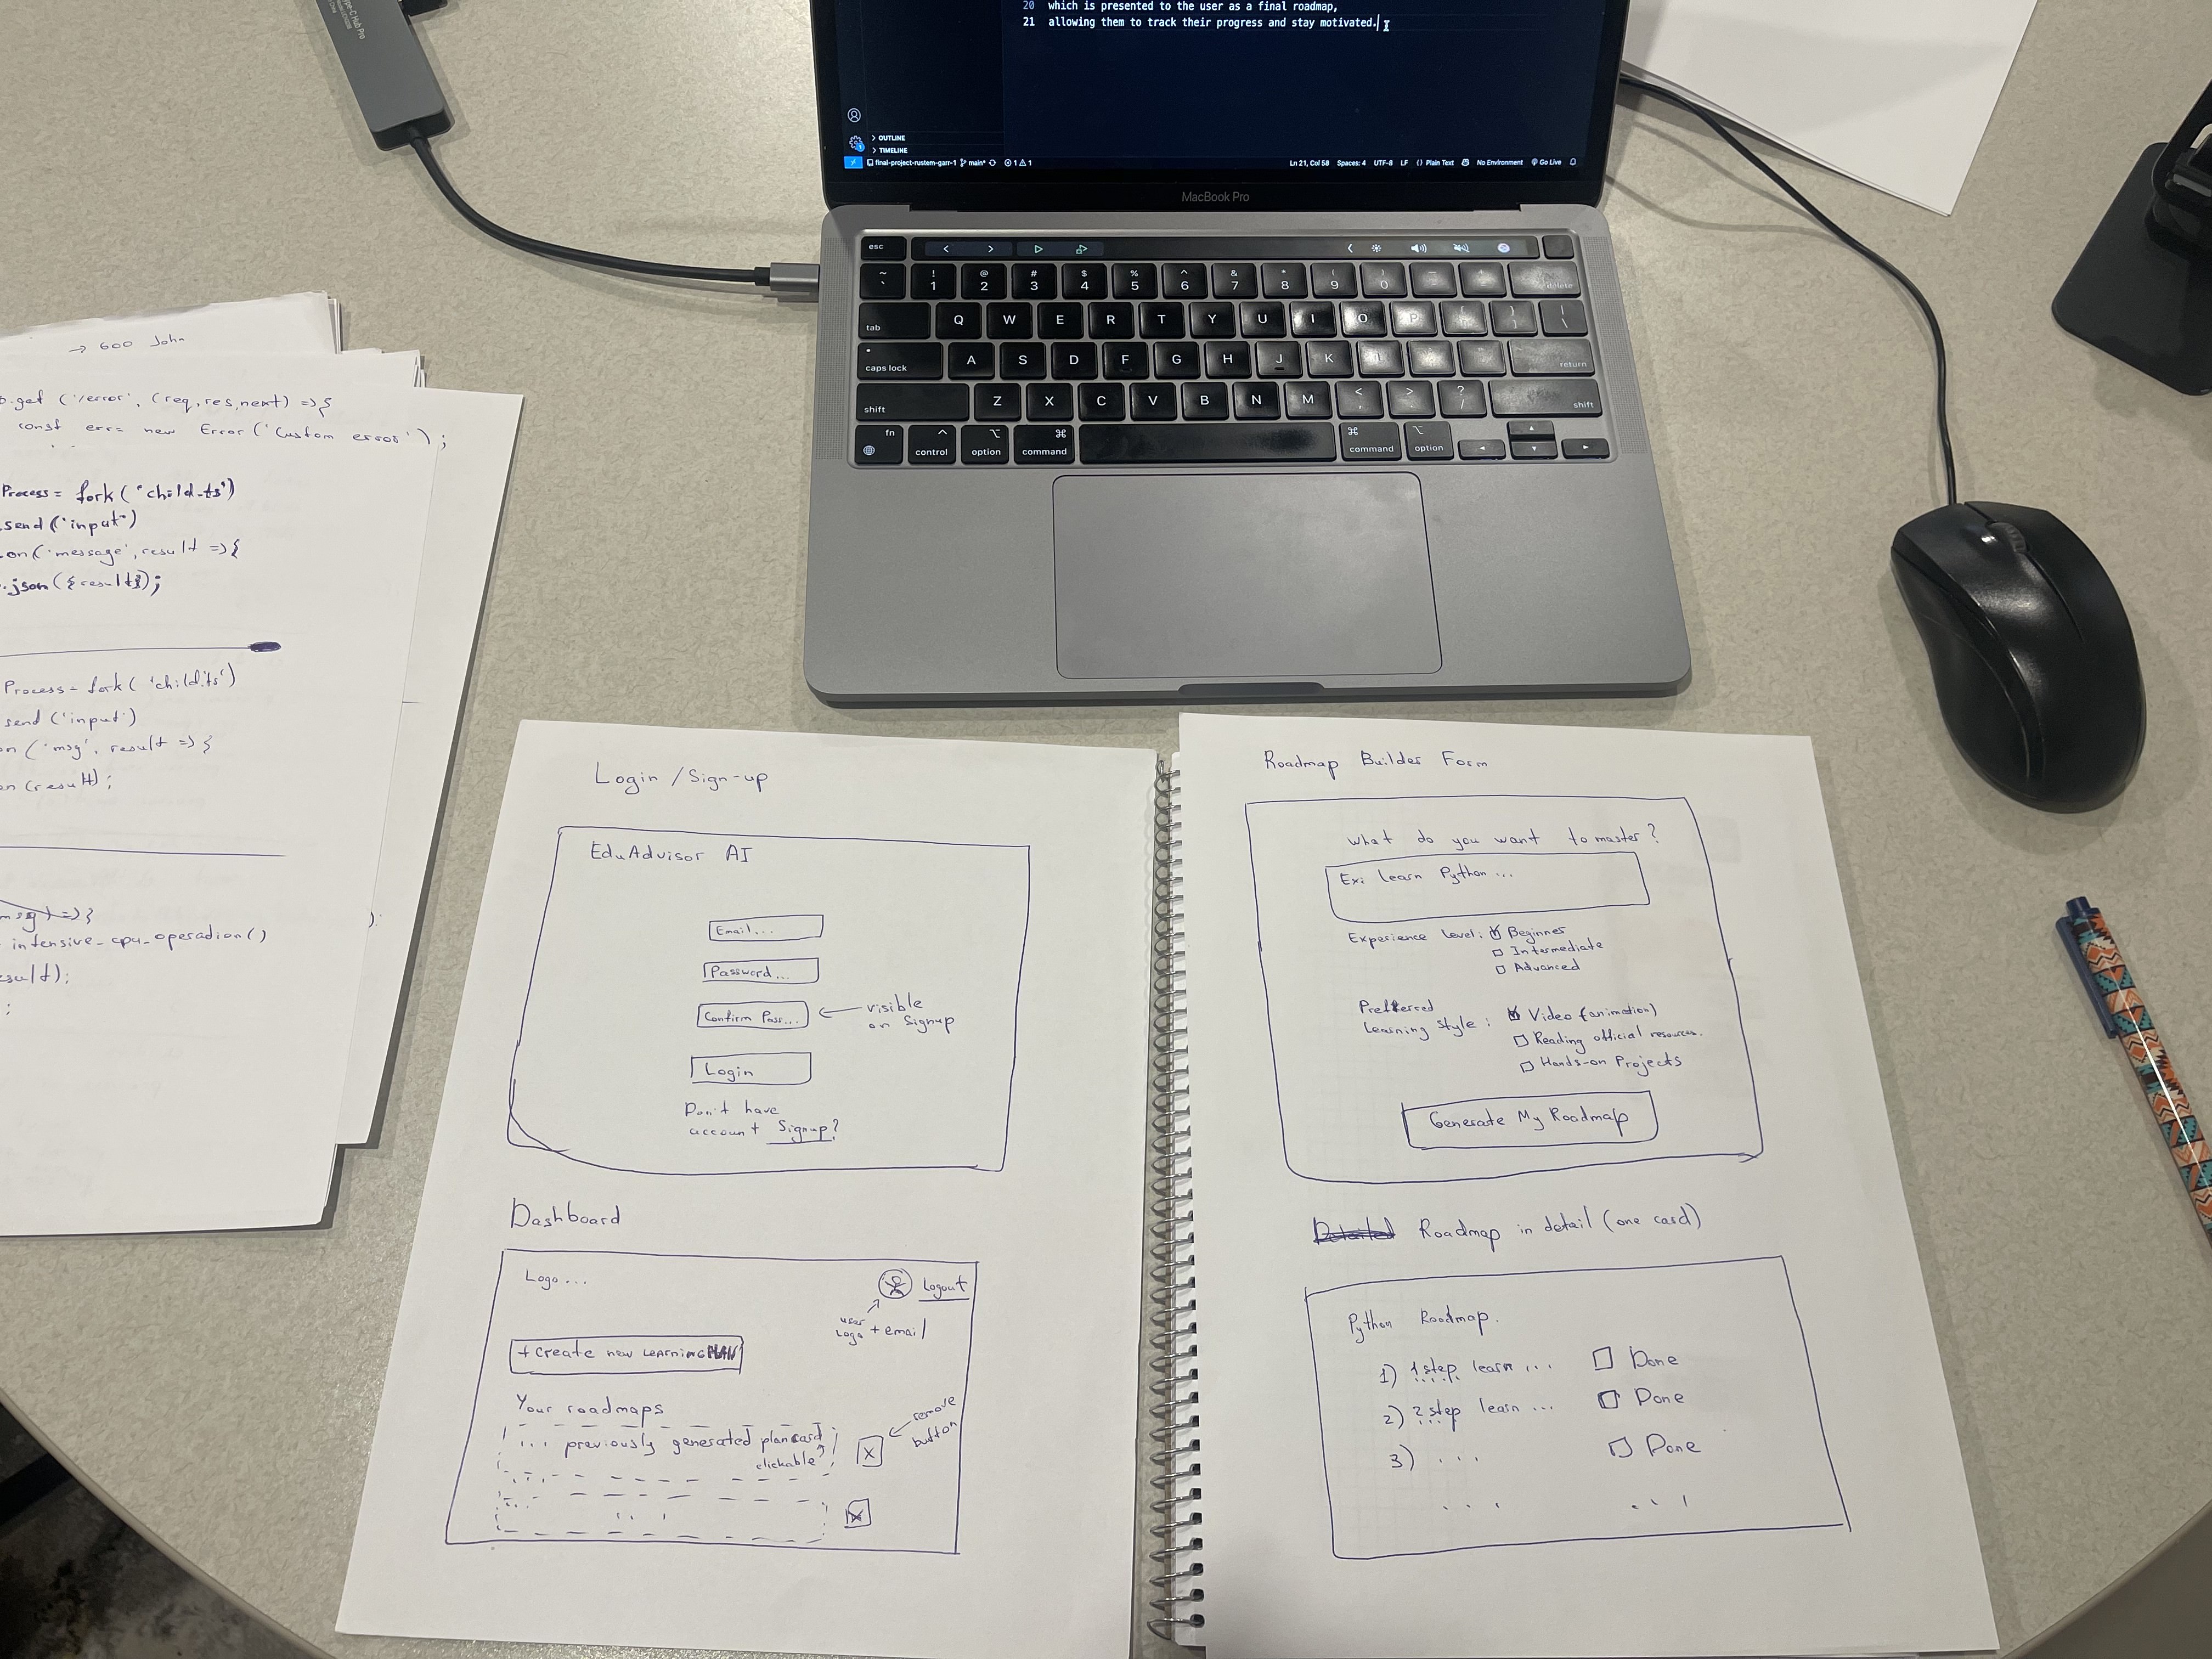 Type-C Hub Pro
20 which is presented to the user as a final roadmap,
21 allowing them to track their progress and stay motivated.
OUTLINE
TIMELINE
final-project-rustem-garr-1 main* 1 1
Ln 21, Col 58 Spaces: 4 UTF-8 LF Plain Text No Environment Go Live
MacBook Pro
esc
~ ! @ # $ % ^ & * ( )
` 1 2 3 4 5 6 7 8 9 0 delete
tab Q W E R T Y U I O P
caps lock A S D F G H J K return
shift Z X C V B N M < , > . ? / shift
fn control option command command option
→ 600 John
.get ('/error', (req, res, next) => {
const err = new Error ('Custom error');
Process = fork ("child.ts")
.send ("input")
on ('message', result => {
.json ({result});
Process = fork ('child.ts')
send ('input')
on ('msg', result => {
(result);
msg) => {
intensive_cpu_operation()
);
;
Login / Sign-up
EduAdvisor AI
Email...
Password...
Confirm Pass...
← visible
on Signup
Login
Don't have
account Signup?
Dashboard
Logo ...
Logout
user
logo + email
+ Create new LEARNING PLAN
Your roadmaps
... previously generated plan card
clickable
X
remove
button
...
X
Roadmap Builder Form
What do you want to master?
Ex: learn Python ...
Experience level: Beginner
Intermediate
Advanced
Preferred
learning style: Video (animation)
Reading official resources.
Hands-on Projects
Generate My Roadmap
Roadmap in detail (one card)
Python Roadmap.
1) 1 step learn ... Done
2) 2 step learn ... Done
3) ... Done
... ...